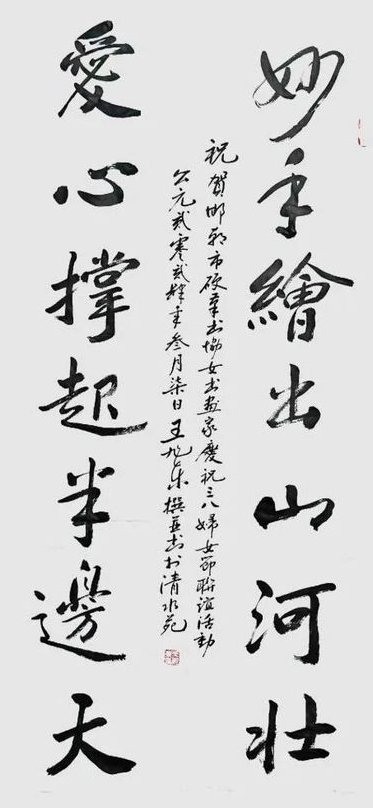 妙手繪出山河壯
祝賀邯鄲市硬筆書協女書畫家慶祝三八婦女節聯誼活動
公元貳零貳肆年叁月柒日王旭東撰並書於清水苑
愛心撐起半邊天